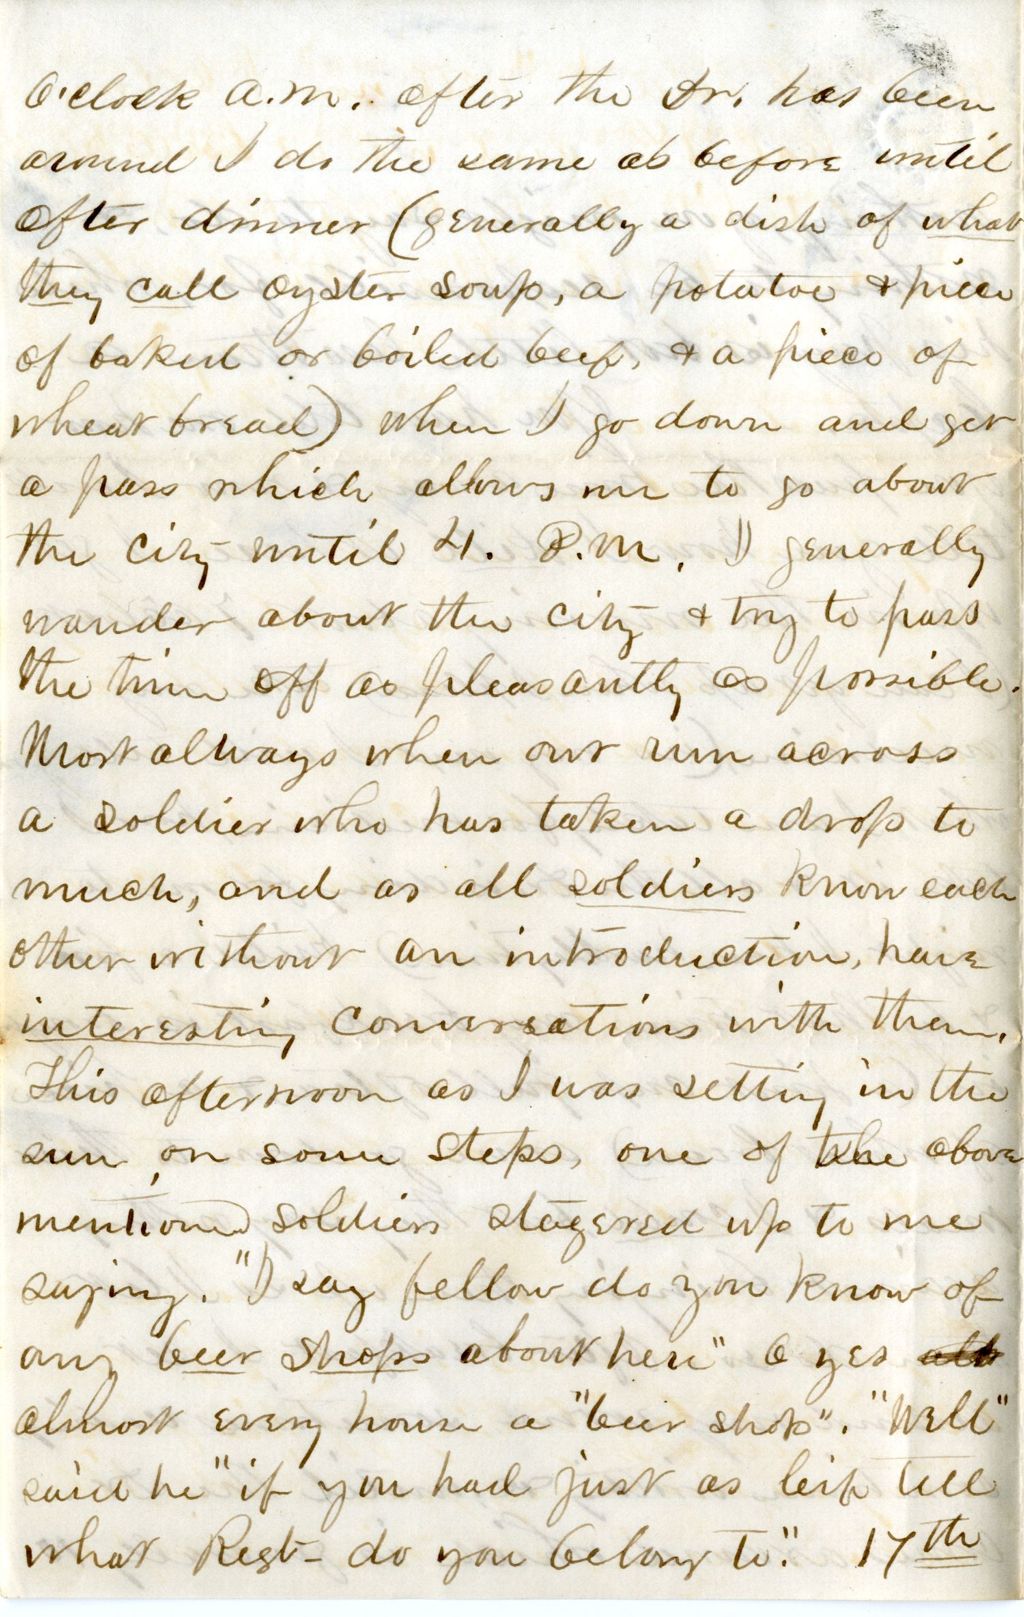 O'clock A.M. after the Dr. has been
around I do the same as before until
after dinner (generally a dish of what
they call oyster soup, a potatoe & piece
of baked or boiled beef, & a piece of
wheat bread) when I go down and get
a pass which allows me to go about
the city until 4. P.M. I generally
wander about the city & try to pass
the time off as pleasantly as possible.
Most always when out run across
a soldier who has taken a drop to
much, and as all soldiers know each
other without an introduction, have
interesting conversations with them.
This afternoon as I was setting in the
sun on some steps, one of the above
mentioned soldiers stagered up to me
saying. "I say fellow do you know of
any beer shops about here" O yes
almost every house a "beer shop". "Well"
said he "if you had just as leif tell
what Regt- do you belong to." 17th